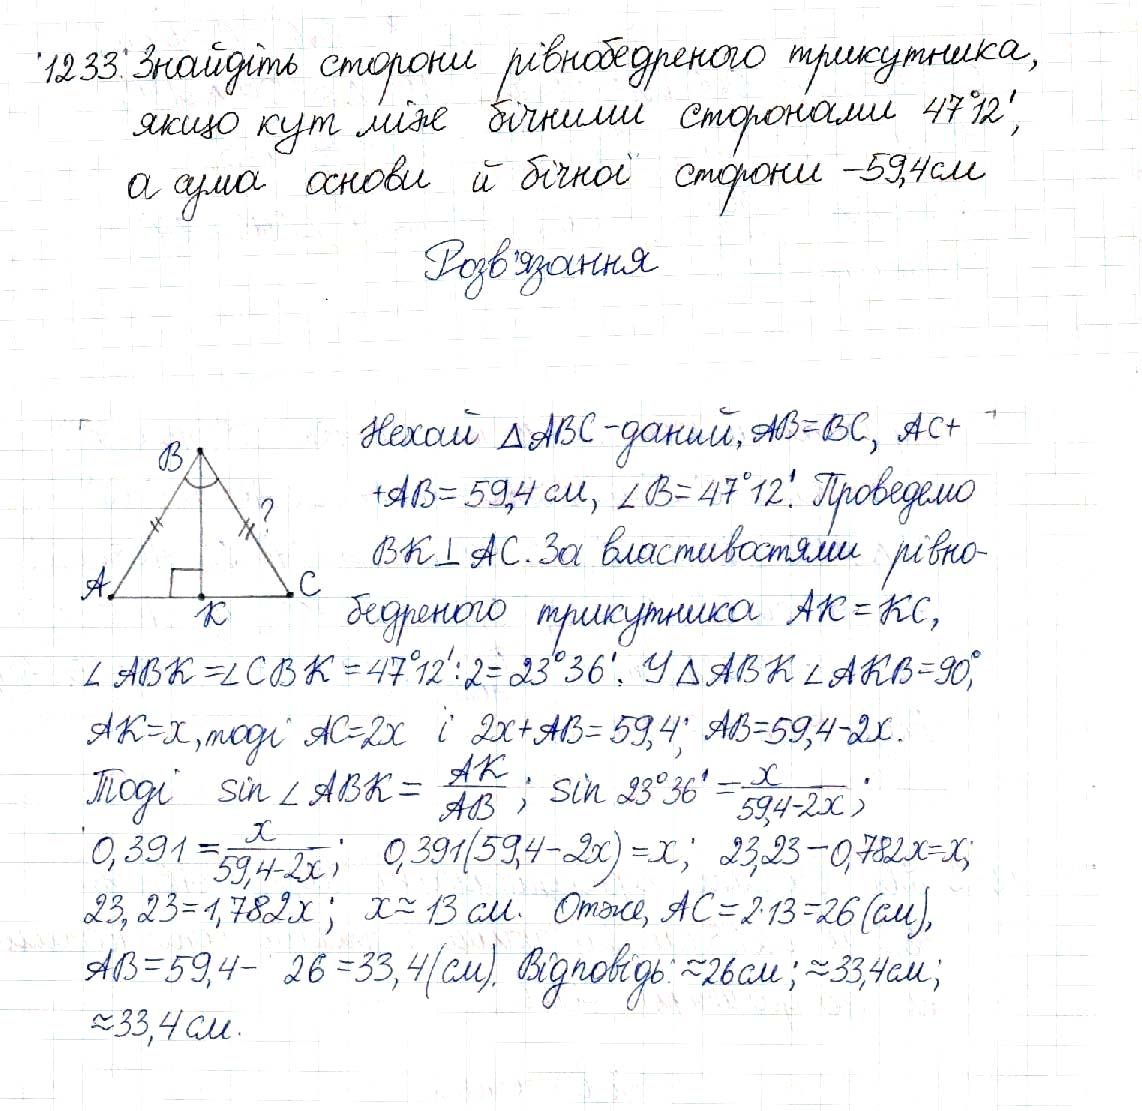 1233. Знайдіть сторони рівнобедреного трикутника,
якщо кут між бічними сторонами 47°12',
а сума основи й бічної сторони – 59,4 см
Розв'язання
Нехай △ABC – даний, AB = BC, AC +
+ AB = 59,4 см, ∠B = 47°12'. Проведемо
BK ⊥ AC. За властивостями рівно-
бедреного трикутника AK = KC,
B
?
A
C
K
∠ABK = ∠CBK = 47°12' : 2 = 23°36'. У △ABK ∠AKB = 90°,
AK = x, тоді AC = 2x і 2x + AB = 59,4; AB = 59,4 – 2x.
Тоді sin ∠ABK = AK/AB; sin 23°36' = x/(59,4 – 2x);
0,391 = x/(59,4 – 2x); 0,391(59,4 – 2x) = x; 23,23 – 0,782x = x;
23,23 = 1,782x; x ≈ 13 см. Отже, AC = 2·13 = 26 (см),
AB = 59,4 – 26 = 33,4 (см). Відповідь: ≈ 26 см; ≈ 33,4 см;
≈ 33,4 см.